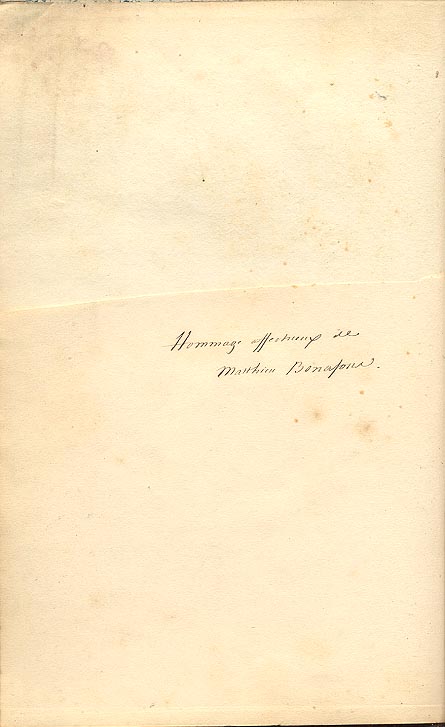 Hommage affectueux de
Matthieu Bonafous.